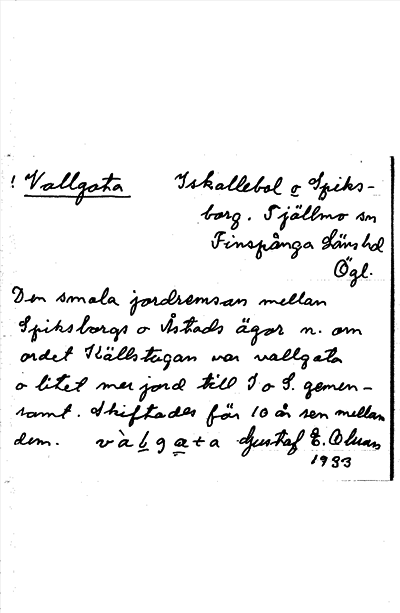 ! Vallgata Iskallebol o Spiks-
borg. Tjällmo sn
Finspånga Länshd
Ögl.
Den smala jordremsan mellan
Spiksborgs o Åstads ägor n. om
ordet Källstugan var vallgata
o litet mer jord till I o S. gemen-
samt. Skiftades för 10 år sen mellan
dem. Gustaf E. Olsson
1933